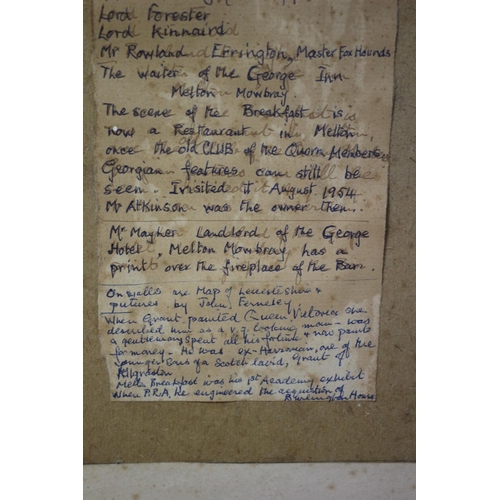 Lord Forester
Lord Kinnaird
Mr Rowland Errington, Master Fox Hounds
The waiter of the George Inn
Melton Mowbray.
The scene of the Breakfast is
now a Restaurant in Melton,
once the old CLUB of the Quorn Members
Georgian features can still be
seen. I visited it August 1954
Mr Atkinson was the owner then.
Mr Mayher Landlord of the George
Hotel, Melton Mowbray, has a
print over the fireplace of the Bar.
On walls are Map of Leicestershire &
pictures by John Ferneley
When Grant painted Queen Victoria she
described him as a v.g. looking man - was
a gentleman, spent all his fortune & now paints
for money. He was ex-Harrovian, one of the
younger sons of a Scotch laird, Grant of
Kilgraston
Melton Breakfast was his 1st Academy exhibit
When P.R.A. he engineered the acquisition of
Burlington House.